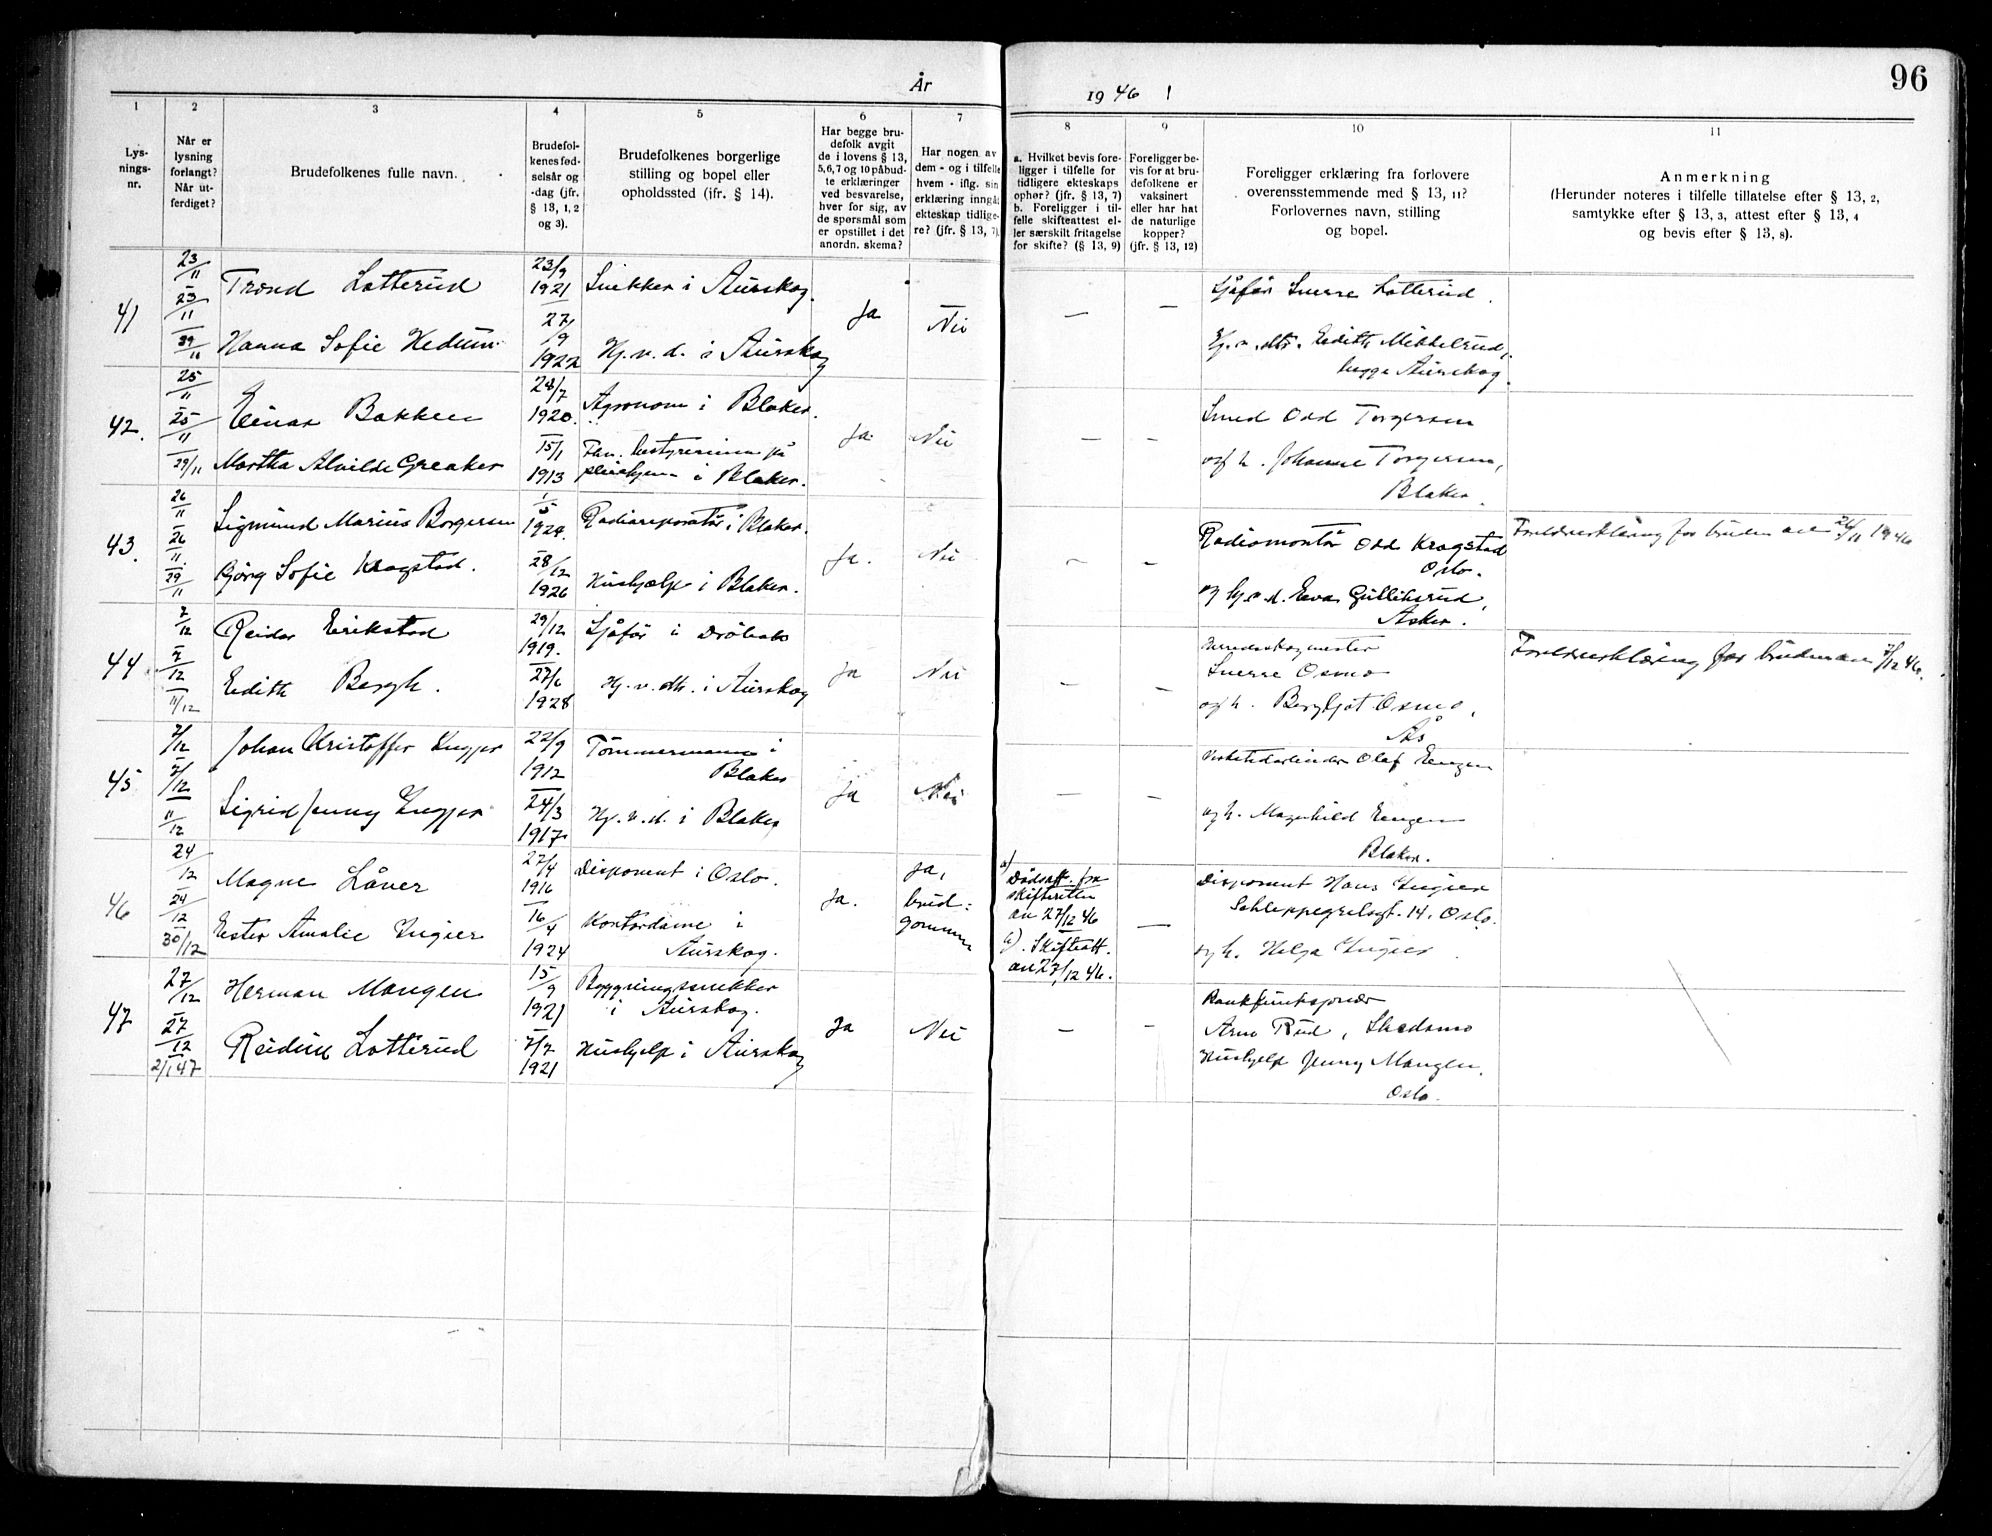 96
År 1946
1 2 3 4 5 6 7 8 9 10 11
Lys-
nings-
nr.
Når er
lysning
forlangt?
Når ut-
ferdiget?
Brudefolkenes fulle navn.
Brudefol-
kenes fød-
selsår og
-dag (jfr.
§ 13, 1, 2
og 3).
Brudefolkenes borgerlige
stilling og bopel eller
opholdssted (jfr. § 14).
Har begge bru-
defolk avgit
de i lovens § 13,
5, 6, 7 og 10 påbud-
te erklæringer
ved besvarelse,
hver for sig, av
de spørsmål som
er opstillet i det
anordn. skema?
Har nogen av
dem - og i tilfelle
hvem - iflg. sin
erklæring inngåt
ekteskap tidlige-
re? (jfr. § 13, 7).
a. Hvilket bevis fore-
ligger i tilfelle for
tidligere ekteskaps
ophør? (jfr. § 13, 7)
b. Foreligger i til-
felle skifteattest el-
ler særskilt fritagelse
for skifte? (§ 13, 9)
Foreligger be-
vis for at bru-
defolkene er
vaksinert
eller har hat
de naturlige
kopper?
(jfr. § 13, 12)
Foreligger erklæring fra forlovere
overensstemmende med § 13, 11?
Forlovernes navn, stilling
og bopel.
Anmerkning
(Herunder noteres i tilfelle tillatelse efter § 13, 2,
samtykke efter § 13, 3, attest efter § 13, 4
og bevis efter § 13, 8).
41
23/11
23/11
29/11
Trond Lotterud
Hanna Sofie Hedum
23/9
1921
27/9
1922
Snekker i Aurskog.
Hj.v.d. i Aurskog
Ja
Nei
— —
Sjåfør Sverre Lotterud.
Hj.v.dtr. Edith Mikkelrud,
begge Aurskog.
42.
25/11
25/11
29/11
Einar Bakken
Martha Alvilde Greaker
28/7
1920.
15/1
1913
Agronom i Blaker.
bestyrerinne på
pleiehjem i Blaker.
Ja.
Nei
— —
Smed Odd Torgersen
og h. Johanne Torgersen,
Blaker.
43.
26/11
26/11
29/11
Sigmund Marius Borgersen
Bjørg Sofie Kragstad.
1/5
1924.
28/12
1926
Radioreparatør i Blaker.
Hushjælp i Blaker.
Ja.
Nei
— —
Radiomontør Odd Kragstad
Oslo.
og hj.v.d. Eva Gulliksrud,
Asker.
Foreldreerklæring for bruden av 26/11 1946
44.
7/12
7/12
11/12
Reidar Erikstad
Edith Bergh.
29/12
1919.
27/6
1928
Sjåfør i Drøbak
Hj.v.dtr. i Aurskog
Ja
Nei
— —
Herredsskogmester
Sverre Osmo
og h. Bergljot Osmo,
Ås
Foreldreerklæring for bruden av 7/12 46.
45
7/12
7/12
11/12
Johan Kristoffer Ingjer
Sigrid Jenny Ingjer
22/9
1912
24/3
1917
Tømmermann i
Blaker
Hj.v.d. i Blaker
Ja
Nei
— —
Olaf Engen
og h. Magnhild Engen
Blaker.
46
24/12
24/12
30/12
Magne Låver
Ester Amalie Ingier
27/4
1916
16/4
1924
Disponent i Oslo.
Kontordame i
Aurskog.
Ja.
Ja,
brud-
gommen
a)
Dødsatt. fra
skifteretten
av 27/12 46
b). Skifteatt.
av 27/12 46.
—
Disponent Hans Ingier
Schleppegrelsgt. 14. Oslo.
og h. Helga Ingier
47
27/12
27/12
2/1 47
Herman Mangen
Reidun Lotterud
15/9
1921
7/7
1921
Bygningssnekker
i Aurskog.
Hushjelp i Aurskog
Ja
Nei
— —
Bankfunksjonær
Arne Rud, Skedsmo
Hushjelp Jenny Mangen.
Oslo.